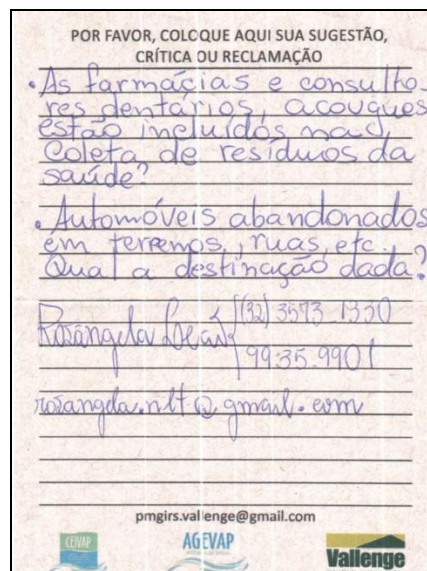 POR FAVOR, COLOQUE AQUI SUA SUGESTÃO,
CRÍTICA OU RECLAMAÇÃO
• As farmácias e consulto-
res dentários, acougues
estão incluídos na
Coleta de resíduos da
saúde?
• Automóveis abandonados
em terrenos, ruas, etc.
Qual a destinação dada?
Rosângela (32) 3573-1330
99.35.9901
rosangela.nlt@gmail.com
pmgirs.vallenge@gmail.com
CEIVAP AGEVAP Vallenge